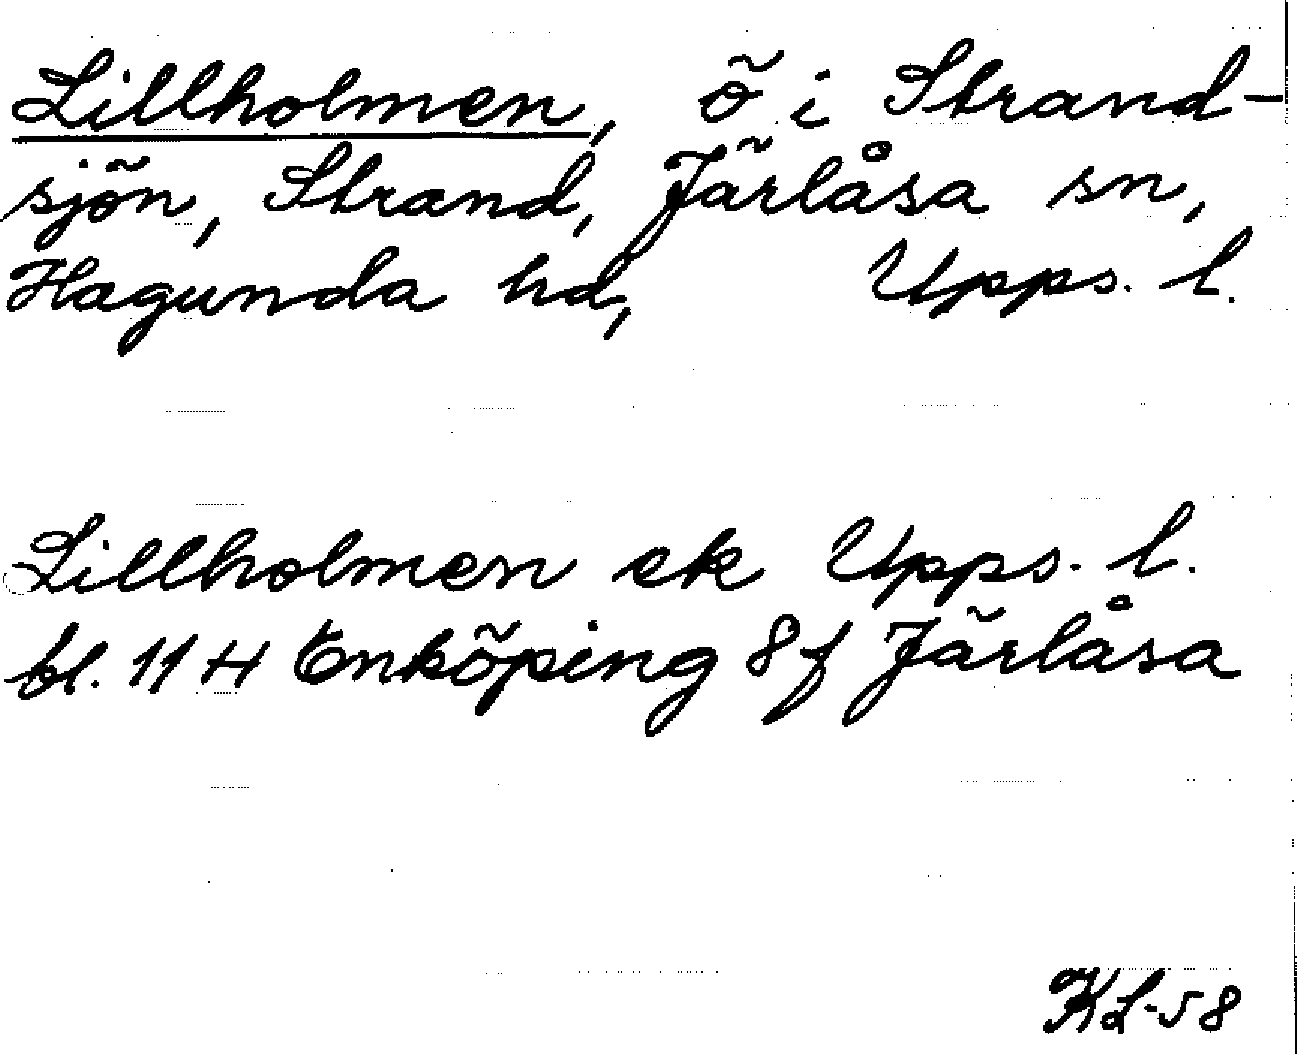 Lillholmen, ö i Strand-
sjön, Strand, Järlåsa sn,
Hagunda hd, Upps. l.
Lillholmen ek Upps. l.
bl. 11 H Enköping 8 f Järlåsa
KL-58